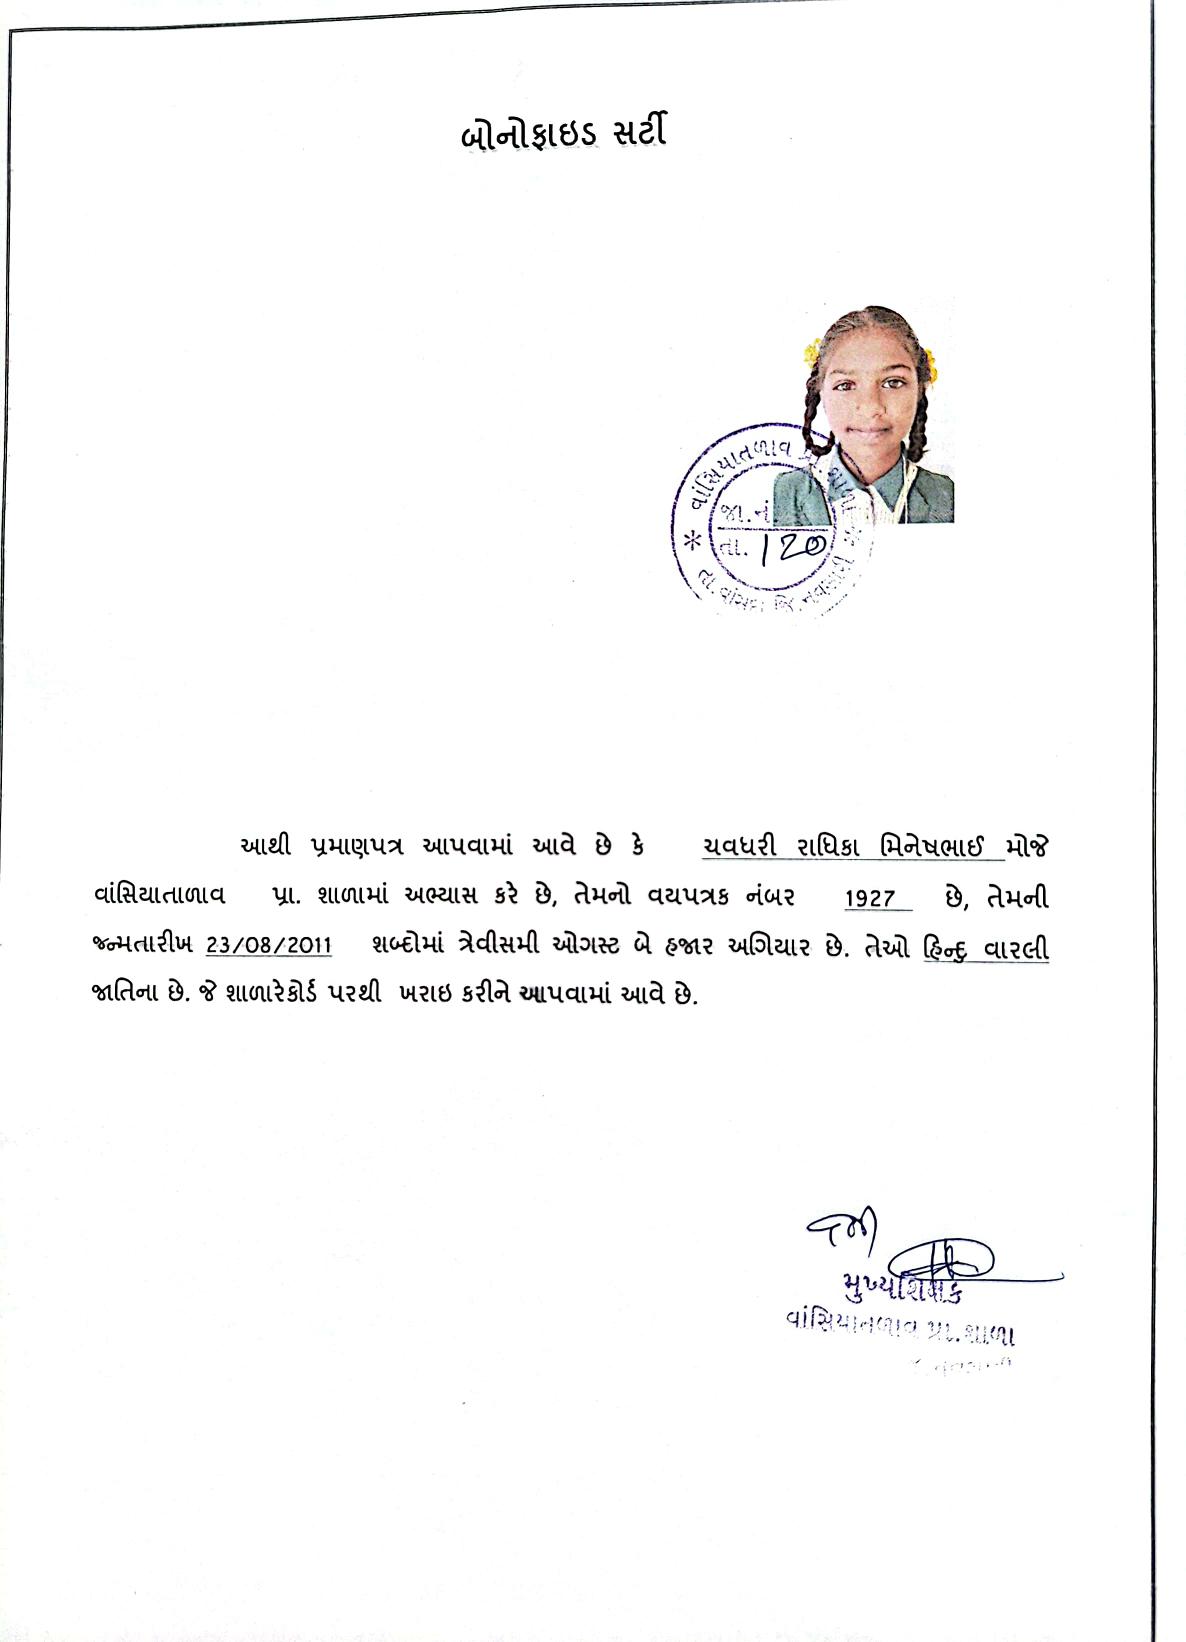 બોનોફાઇડ સર્ટી
વાંસિયાતળાવ પ્રા. શાળા
જા.નં
તા. 120
તા. વાંસદા જિ. નવસારી
આથી પ્રમાણપત્ર આપવામાં આવે છે કે ચવધરી રાધિકા મિનેષભાઈ મોજે
વાંસિયાતાળાવ પ્રા. શાળામાં અભ્યાસ કરે છે, તેમનો વયપત્રક નંબર 1927 છે, તેમની
જન્મતારીખ 23/08/2011 શબ્દોમાં ત્રેવીસમી ઓગસ્ટ બે હજાર અગિયાર છે. તેઓ હિન્દુ વારલી
જાતિના છે. જે શાળારેકોર્ડ પરથી ખરાઇ કરીને આપવામાં આવે છે.
મુખ્યશિક્ષક
વાંસિયાતળાવ પ્રા. શાળા